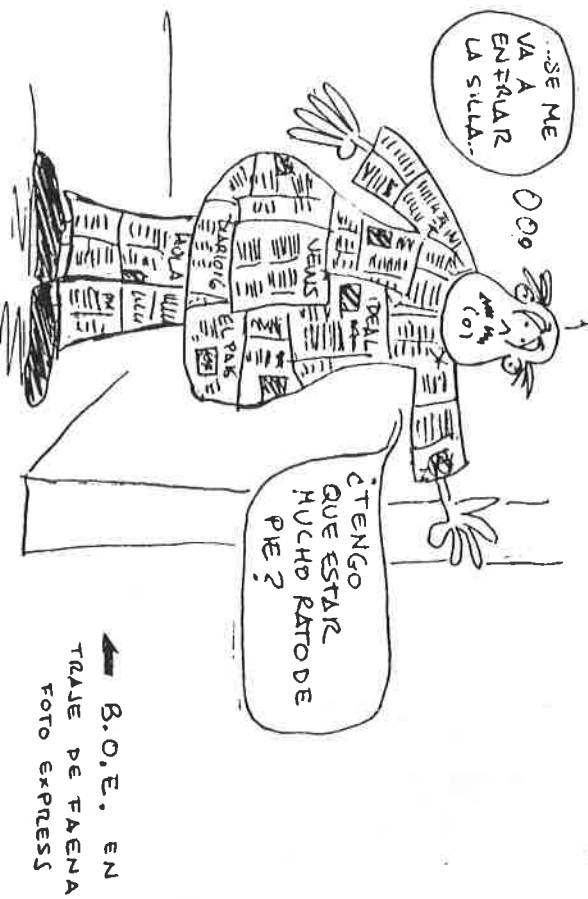 ...SE ME
VA A
ENFRIAR
LA SILLA..
¿TENGO
QUE ESTAR
MUCHO RATO DE
PIE?
IDEAL
YA
VENS
DIARIO16
EL PAIS
HOLA
B.O.E. EN
TRAJE DE FAENA
FOTO EXPRESS